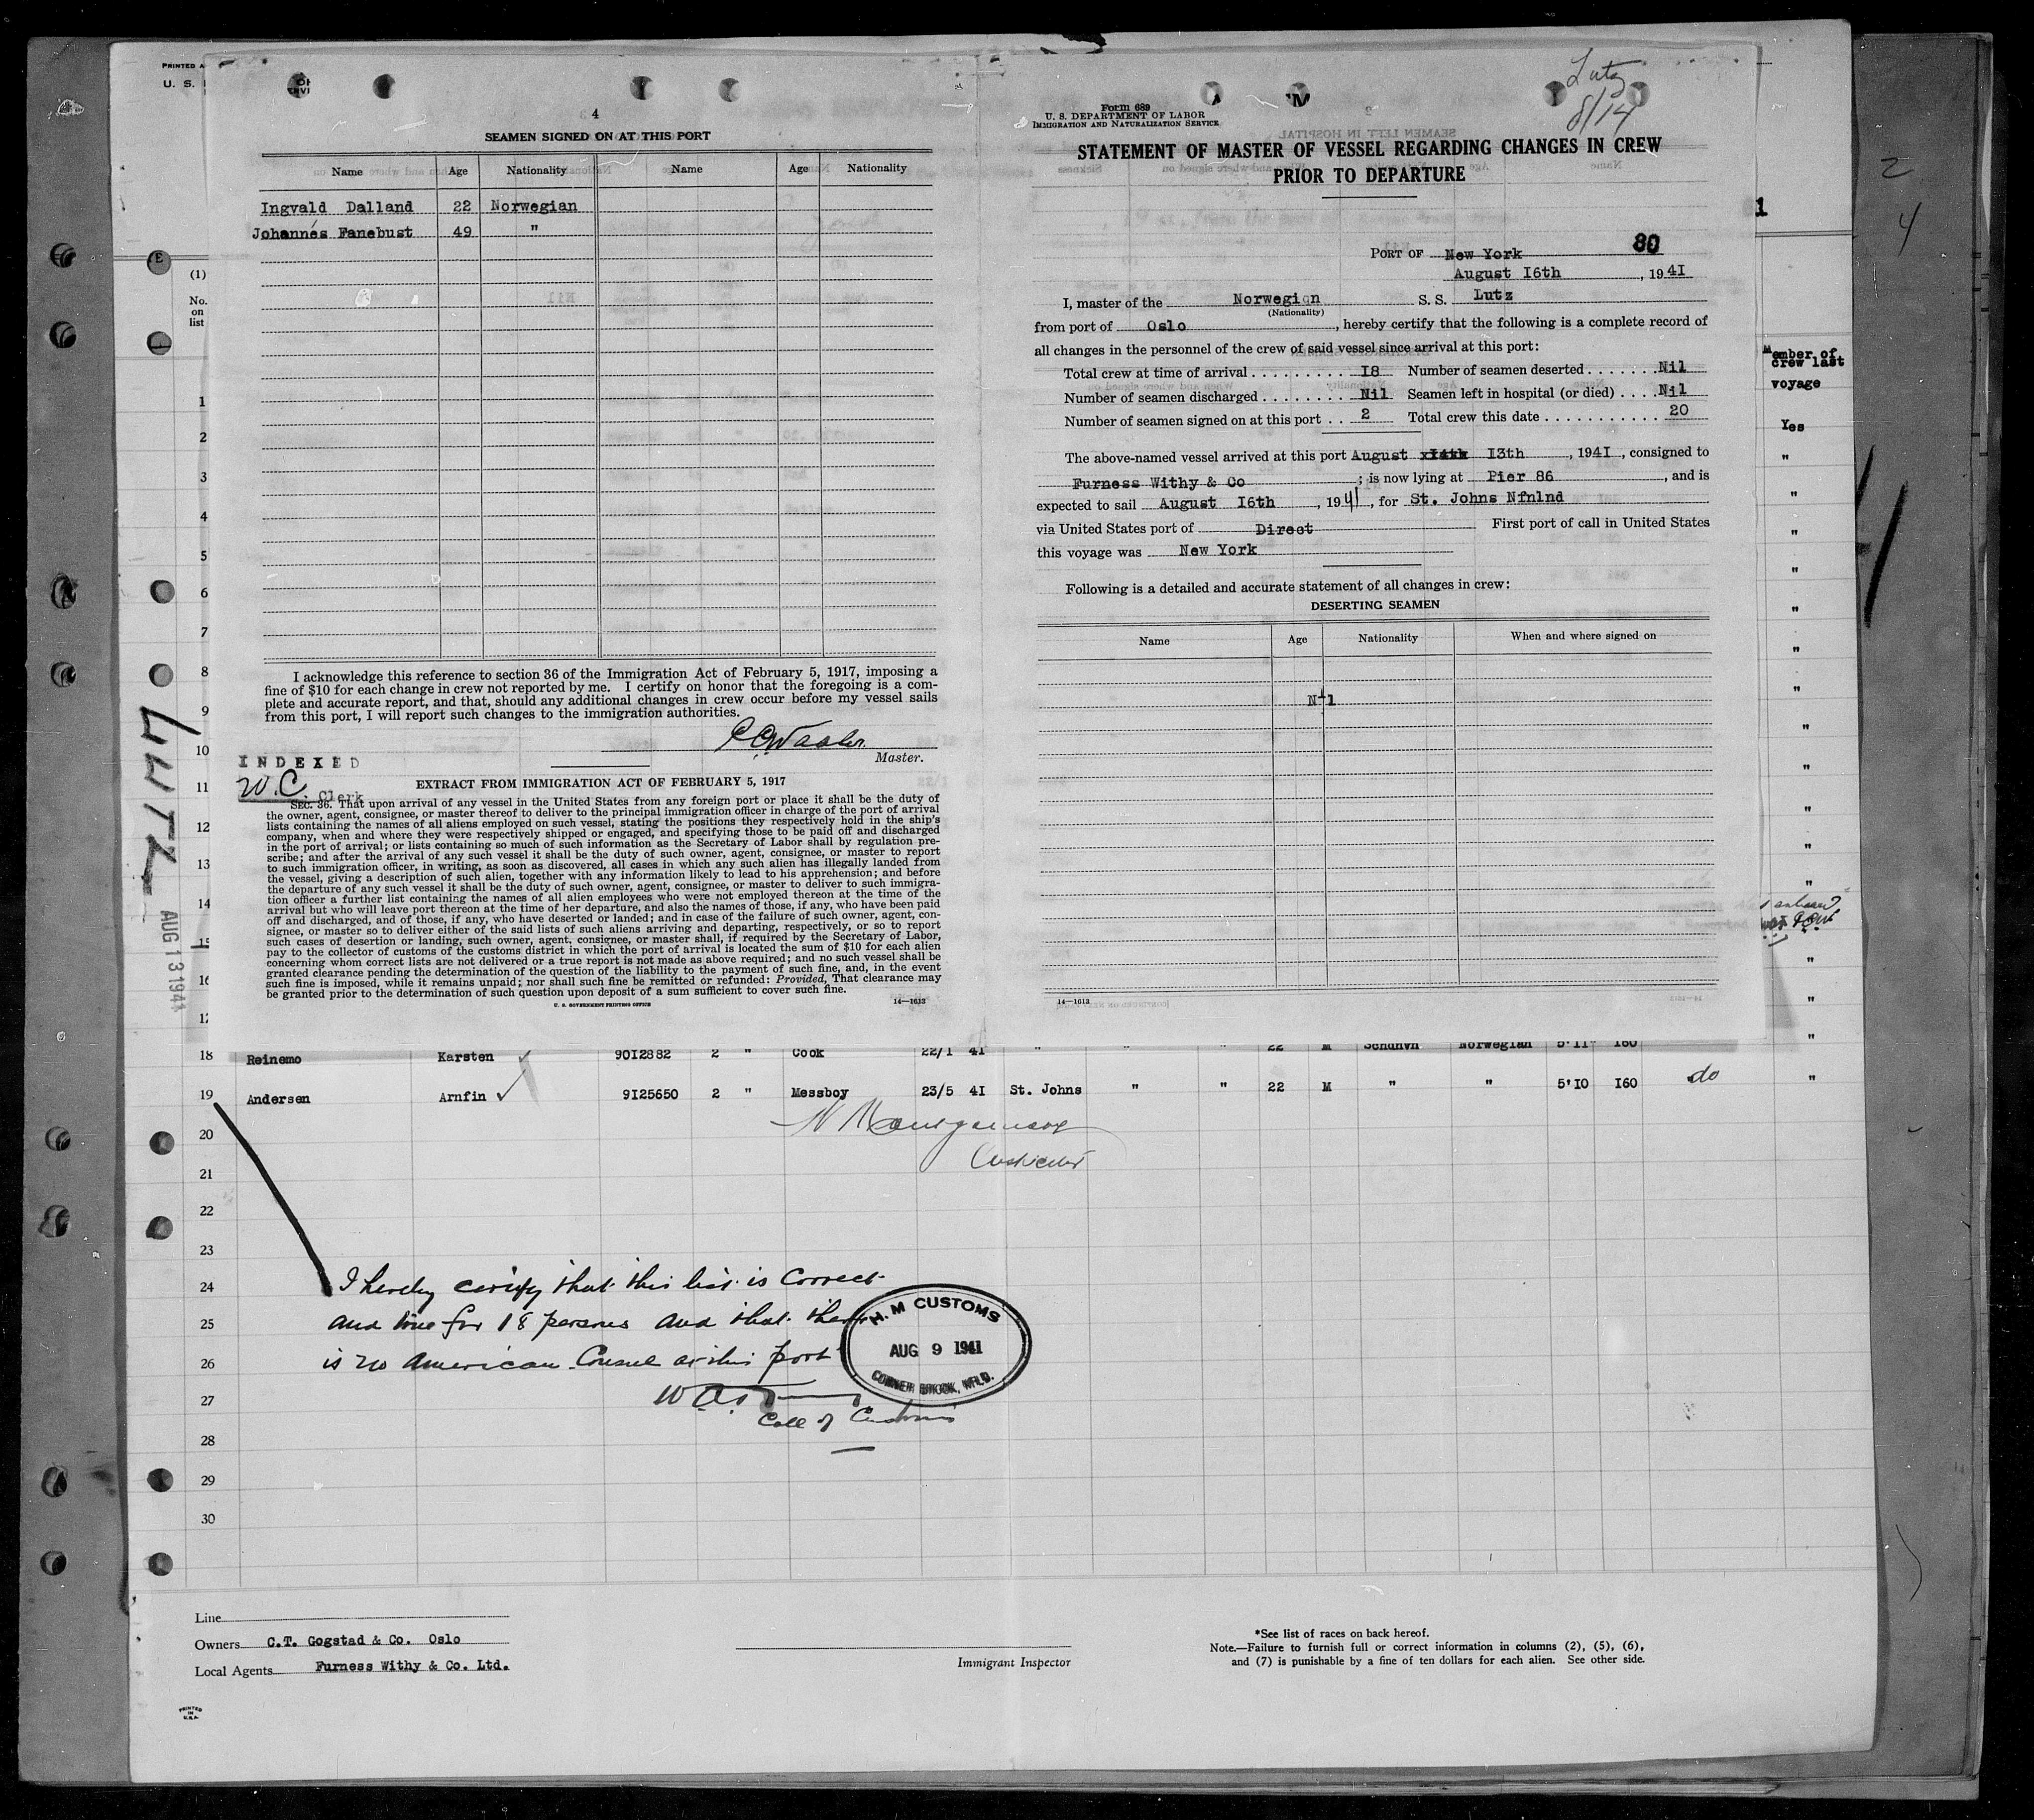 PRINTED
U. S.
4
SEAMEN SIGNED ON AT THIS PORT
Name Age Nationality Name Age Nationality
Ingvald Dalland 22 Norwegian
Johannés Fanebust 49 "
I acknowledge this reference to section 36 of the Immigration Act of February 5, 1917, imposing a
fine of $10 for each change in crew not reported by me. I certify on honor that the foregoing is a com-
plete and accurate report, and that, should any additional changes in crew occur before my vessel sails
from this port, I will report such changes to the immigration authorities.
Master.
INDEXED
W.C. Clerk
EXTRACT FROM IMMIGRATION ACT OF FEBRUARY 5, 1917
SEC. 36. That upon arrival of any vessel in the United States from any foreign port or place it shall be the duty of
the owner, agent, consignee, or master thereof to deliver to the principal immigration officer in charge of the port of arrival
lists containing the names of all aliens employed on such vessel, stating the positions they respectively hold in the ship's
company, when and where they were respectively shipped or engaged, and specifying those to be paid off and discharged
in the port of arrival; or lists containing so much of such information as the Secretary of Labor shall by regulation pre-
scribe; and after the arrival of any such vessel it shall be the duty of such owner, agent, consignee, or master to report
to such immigration officer, in writing, as soon as discovered, all cases in which any such alien has illegally landed from
the vessel, giving a description of such alien, together with any information likely to lead to his apprehension; and before
the departure of any such vessel it shall be the duty of such owner, agent, consignee, or master to deliver to such immigra-
tion officer a further list containing the names of all alien employees who were not employed thereon at the time of the
arrival but who will leave port thereon at the time of her departure, and also the names of those, if any, who have been paid
off and discharged, and of those, if any, who have deserted or landed; and in case of the failure of such owner, agent, con-
signee, or master so to deliver either of the said lists of such aliens arriving and departing, respectively, or so to report
such cases of desertion or landing, such owner, agent, consignee, or master shall, if required by the Secretary of Labor,
pay to the collector of customs of the customs district in which the port of arrival is located the sum of $10 for each alien
concerning whom correct lists are not delivered or a true report is not made as above required; and no such vessel shall be
granted clearance pending the determination of the question of the liability to the payment of such fine, and, in the event
such fine is imposed, while it remains unpaid; nor shall such fine be remitted or refunded: Provided, That clearance may
be granted prior to the determination of such question upon deposit of a sum sufficient to cover such fine.
U. S. GOVERNMENT PRINTING OFFICE 14—1613
Lutz
8/14
Form 689
U. S. DEPARTMENT OF LABOR
IMMIGRATION AND NATURALIZATION SERVICE
STATEMENT OF MASTER OF VESSEL REGARDING CHANGES IN CREW
PRIOR TO DEPARTURE
80
PORT OF New York
August 16th, 1941
I, master of the Norwegian S. S. Lutz
(Nationality)
from port of Oslo, hereby certify that the following is a complete record of
all changes in the personnel of the crew of said vessel since arrival at this port:
Total crew at time of arrival 18 Number of seamen deserted Nil
Number of seamen discharged Nil Seamen left in hospital (or died) Nil
Number of seamen signed on at this port 2 Total crew this date 20
The above-named vessel arrived at this port August 13th, 1941, consigned to
Furness Withy & Co; is now lying at Pier 86, and is
expected to sail August 16th, 1941, for St. Johns Nfnlnd
via United States port of Direct First port of call in United States
this voyage was New York
Following is a detailed and accurate statement of all changes in crew:
DESERTING SEAMEN
Name Age Nationality When and where signed on
Nil
14—1613
1
2
4
Member of
crew last
voyage
Yes
(1)
No.
on
list
1
2
3
4
5
6
7
8
9
10
11
12
13
14
15
16
LUTZ
AUG 13 1941
18 Reinemo Karsten 9012882 2 " Cook 22/1 41 " " " 22 M Norwegian 5'11 180
19 Andersen Arnfin 9125650 2 " Messboy 23/5 41 St. Johns " " 22 M " " 5'10 160 do "
20
21
22
23
24 I hereby certify that this list is correct
25 and true for 18 persons and that there
26 is no American Consul at this port
27
Coll of Customs
28
29
30
H.M CUSTOMS
AUG 9 1941
CORNER BROOK, NFLD.
Line
Owners C.T. Gogstad & Co. Oslo
Local Agents Furness Withy & Co. Ltd.
Immigrant Inspector
*See list of races on back hereof.
Note.—Failure to furnish full or correct information in columns (2), (5), (6),
and (7) is punishable by a fine of ten dollars for each alien. See other side.
PRINTED
IN
U.S.A.